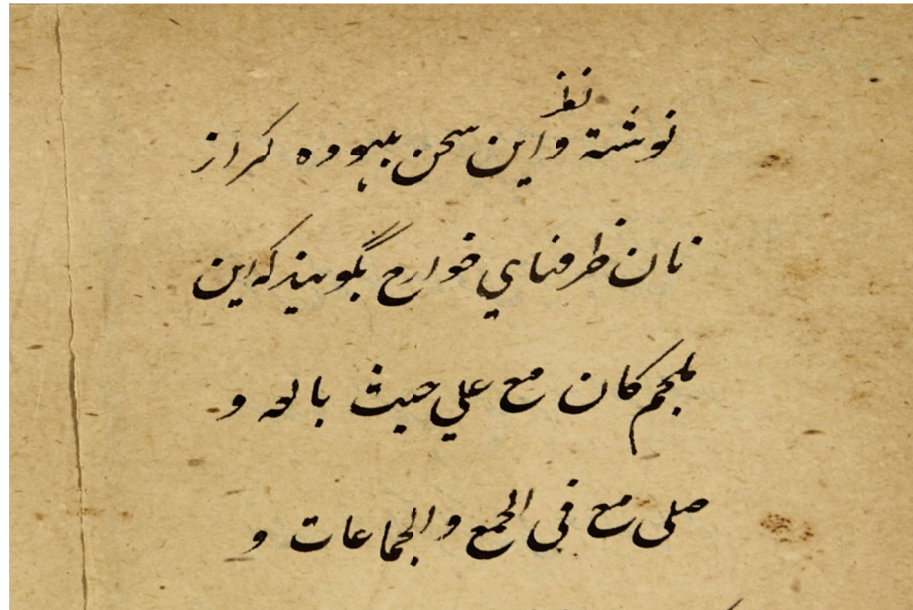 نظر
نوشتة و این سخن بیهوده کراز
نان ظرفنای خوارج بگویند که این
ملجم کان مع علي حیث بالعه و
صلی مع في الجمع و الجماعات و